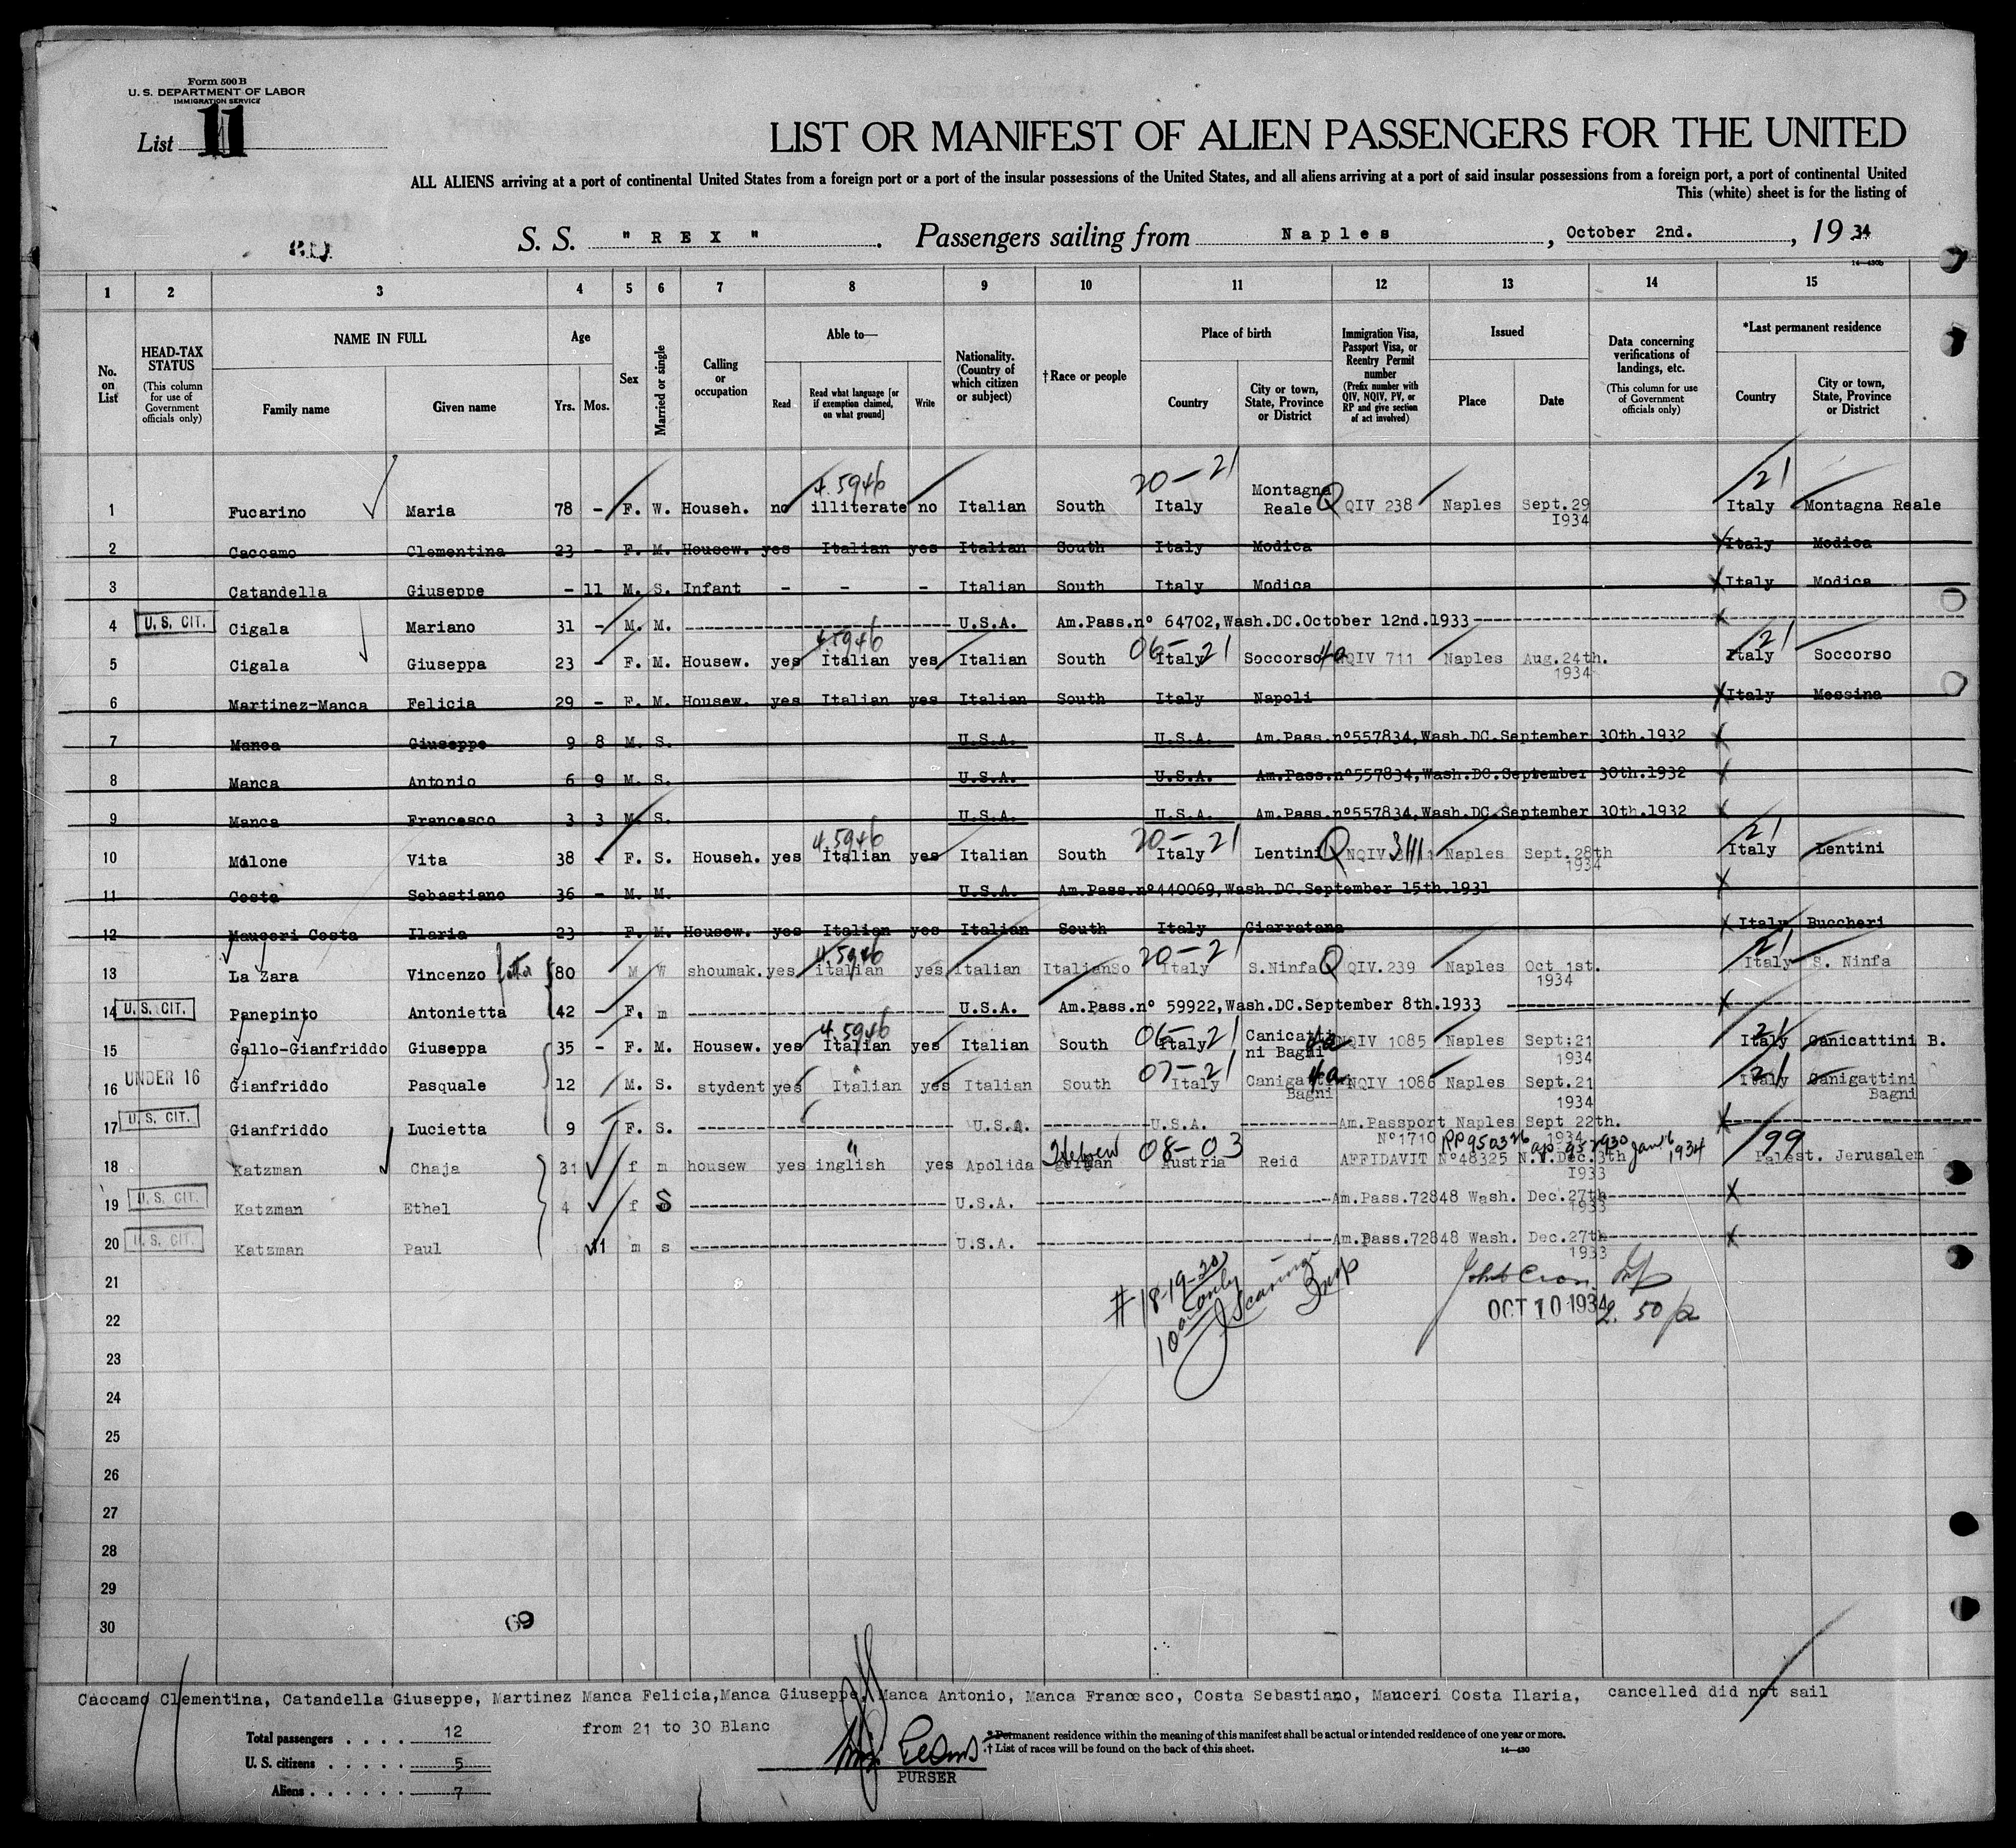 Form 500 B
U. S. DEPARTMENT OF LABOR
IMMIGRATION SERVICE
List 11
LIST OR MANIFEST OF ALIEN PASSENGERS FOR THE UNITED
ALL ALIENS arriving at a port of continental United States from a foreign port or a port of the insular possessions of the United States, and all aliens arriving at a port of said insular possessions from a foreign port, a port of continental United
This (white) sheet is for the listing of
S. S. " R E X " . Passengers sailing from Naples , October 2nd. , 19 34
14—430b
1 2 3 4 5 6 7 8 9 10 11 12 13 14 15
No. on List
HEAD-TAX STATUS (This column for use of Government officials only)
NAME IN FULL Family name Given name
Age Yrs. Mos.
Sex
Married or single
Calling or occupation
Able to— Read Read what language [or if exemption claimed, on what ground] Write
Nationality. (Country of which citizen or subject)
†Race or people
Place of birth Country City or town, State, Province or District
Immigration Visa, Passport Visa, or Reentry Permit number (Prefix number with QIV, NQIV, PV, or RP and give section of act involved)
Issued Place Date
Data concerning verifications of landings, etc. (This column for use of Government officials only)
*Last permanent residence Country City or town, State, Province or District
4.5946 20-21 21
1 Fucarino Maria 78 - F. W. Househ. no illiterate no Italian South Italy Montagna Reale Q QIV 238 Naples Sept.29 1934 Italy Montagna Reale
2 Caccamo Clementina 23 - F. M. Housew. yes Italian yes Italian South Italy Modica Italy Modica
3 Catandella Giuseppe - 11 M. S. Infant - - - Italian South Italy Modica Italy Modica
4 U. S. CIT. Cigala Mariano 31 - M. M. U.S.A. Am.Pass.nº 64702,Wash.DC.October 12nd.1933
4.5946 06-21 21
5 Cigala Giuseppa 23 - F. M. Housew. yes Italian yes Italian South Italy Soccorso 4a NQIV 711 Naples Aug.24th. 1934 Italy Soccorso
6 Martinez-Manca Felicia 29 - F. M. Housew. yes Italian yes Italian South Italy Napoli Italy Messina
7 Manca Giuseppe 9 8 M. S. U.S.A. U.S.A. Am.Pass.nº557834,Wash.DC.September 30th.1932
8 Manca Antonio 6 9 M. S. U.S.A. U.S.A. Am.Pass.nº557834,Wash.DC.September 30th.1932
9 Manca Francesco 3 3 M. S. U.S.A. U.S.A. Am.Pass.nº557834,Wash.DC.September 30th.1932
4.5946 20-21 21
10 Milone Vita 38 - F. S. Househ. yes Italian yes Italian South Italy Lentini Q NQIV Naples Sept.28th 1934 Italy Lentini
11 Costa Sebastiano 36 - M. M. U.S.A. Am.Pass.nº440069,Wash.DC.September 15th.1931
12 Mauceri Costa Ilaria 23 F. M. Housew. yes Italian yes Italian South Italy Giarratana Italy Buccheri
4.5946 20-21 21
13 La Zara Vincenzo 80 M W shoumak. yes italian yes Italian ItalianSo Italy S.Ninfa Q QIV.239 Naples Oct 1st. 1934 Italy S. Ninfa
14 U. S. CIT. Panepinto Antonietta 42 - F. m U.S.A. Am.Pass.nº 59922,Wash.DC.September 8th.1933
4.5946 06-21 21
15 Gallo-Gianfriddo Giuseppa 35 - F. M. Housew. yes Italian yes Italian South Italy Canicatti ni Bagni 4a NQIV 1085 Naples Sept:21 1934 Italy Canicattini B.
07-21 21
16 UNDER 16 Gianfriddo Pasquale 12 M. S. stydent yes Italian yes Italian South Italy Canigattini Bagni 4a NQIV 1086 Naples Sept.21 1934 Italy Canigattini Bagni
17 U. S. CIT. Gianfriddo Lucietta 9 F. S. U.S.A. U.S.A. Am.Passport Naples Sept 22th. Nº1710 1934
Hebrew 08-03 RP950326 Jan 16 1934 99
18 Katzman Chaja 31 f m housew yes inglish yes Apolida german Austria Reid AFFIDAVIT Nº48325 N.Y.Dec.3th 1933 Palest. Jerusalem
19 U. S. CIT. Katzman Ethel 4 f S U.S.A. Am.Pass.72848 Wash. Dec.27th 1933
20 U. S. CIT. Katzman Paul 11 m s U.S.A. Am.Pass.72848 Wash. Dec.27th 1933
21
# 18-19-20 only
OCT 10 1934
22
23
24
25
26
27
28
29
30
69
Caccamo Clementina, Catandella Giuseppe, Martinez Manca Felicia,Manca Giuseppe, Manca Antonio, Manca Francesco, Costa Sebastiano, Mauceri Costa Ilaria, cancelled did not sail
from 21 to 30 Blanc
Total passengers . . . . 12
U. S. citizens . . . . . 5
Aliens . . . . . . 7
PURSER
* Permanent residence within the meaning of this manifest shall be actual or intended residence of one year or more.
† List of races will be found on the back of this sheet.
14—430